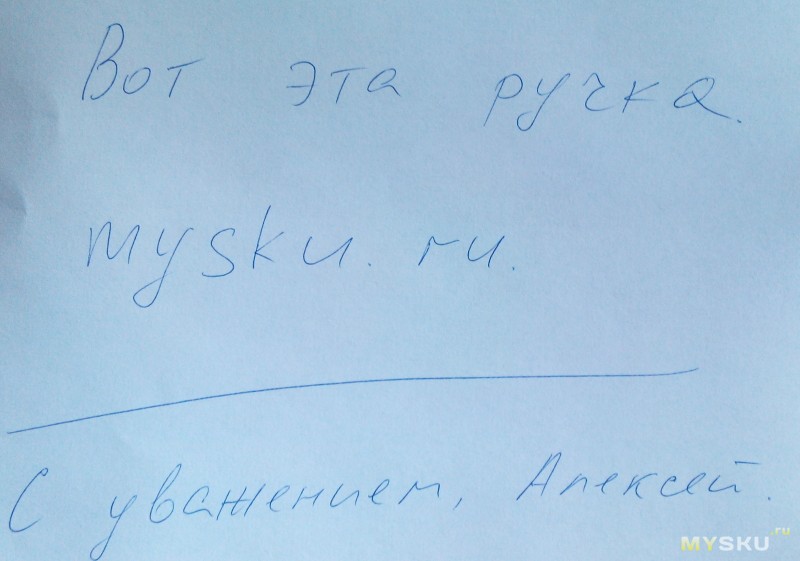 Вот эта ручка.
mysku.ru.
С уважением, Алексей.
MYSKU.ru